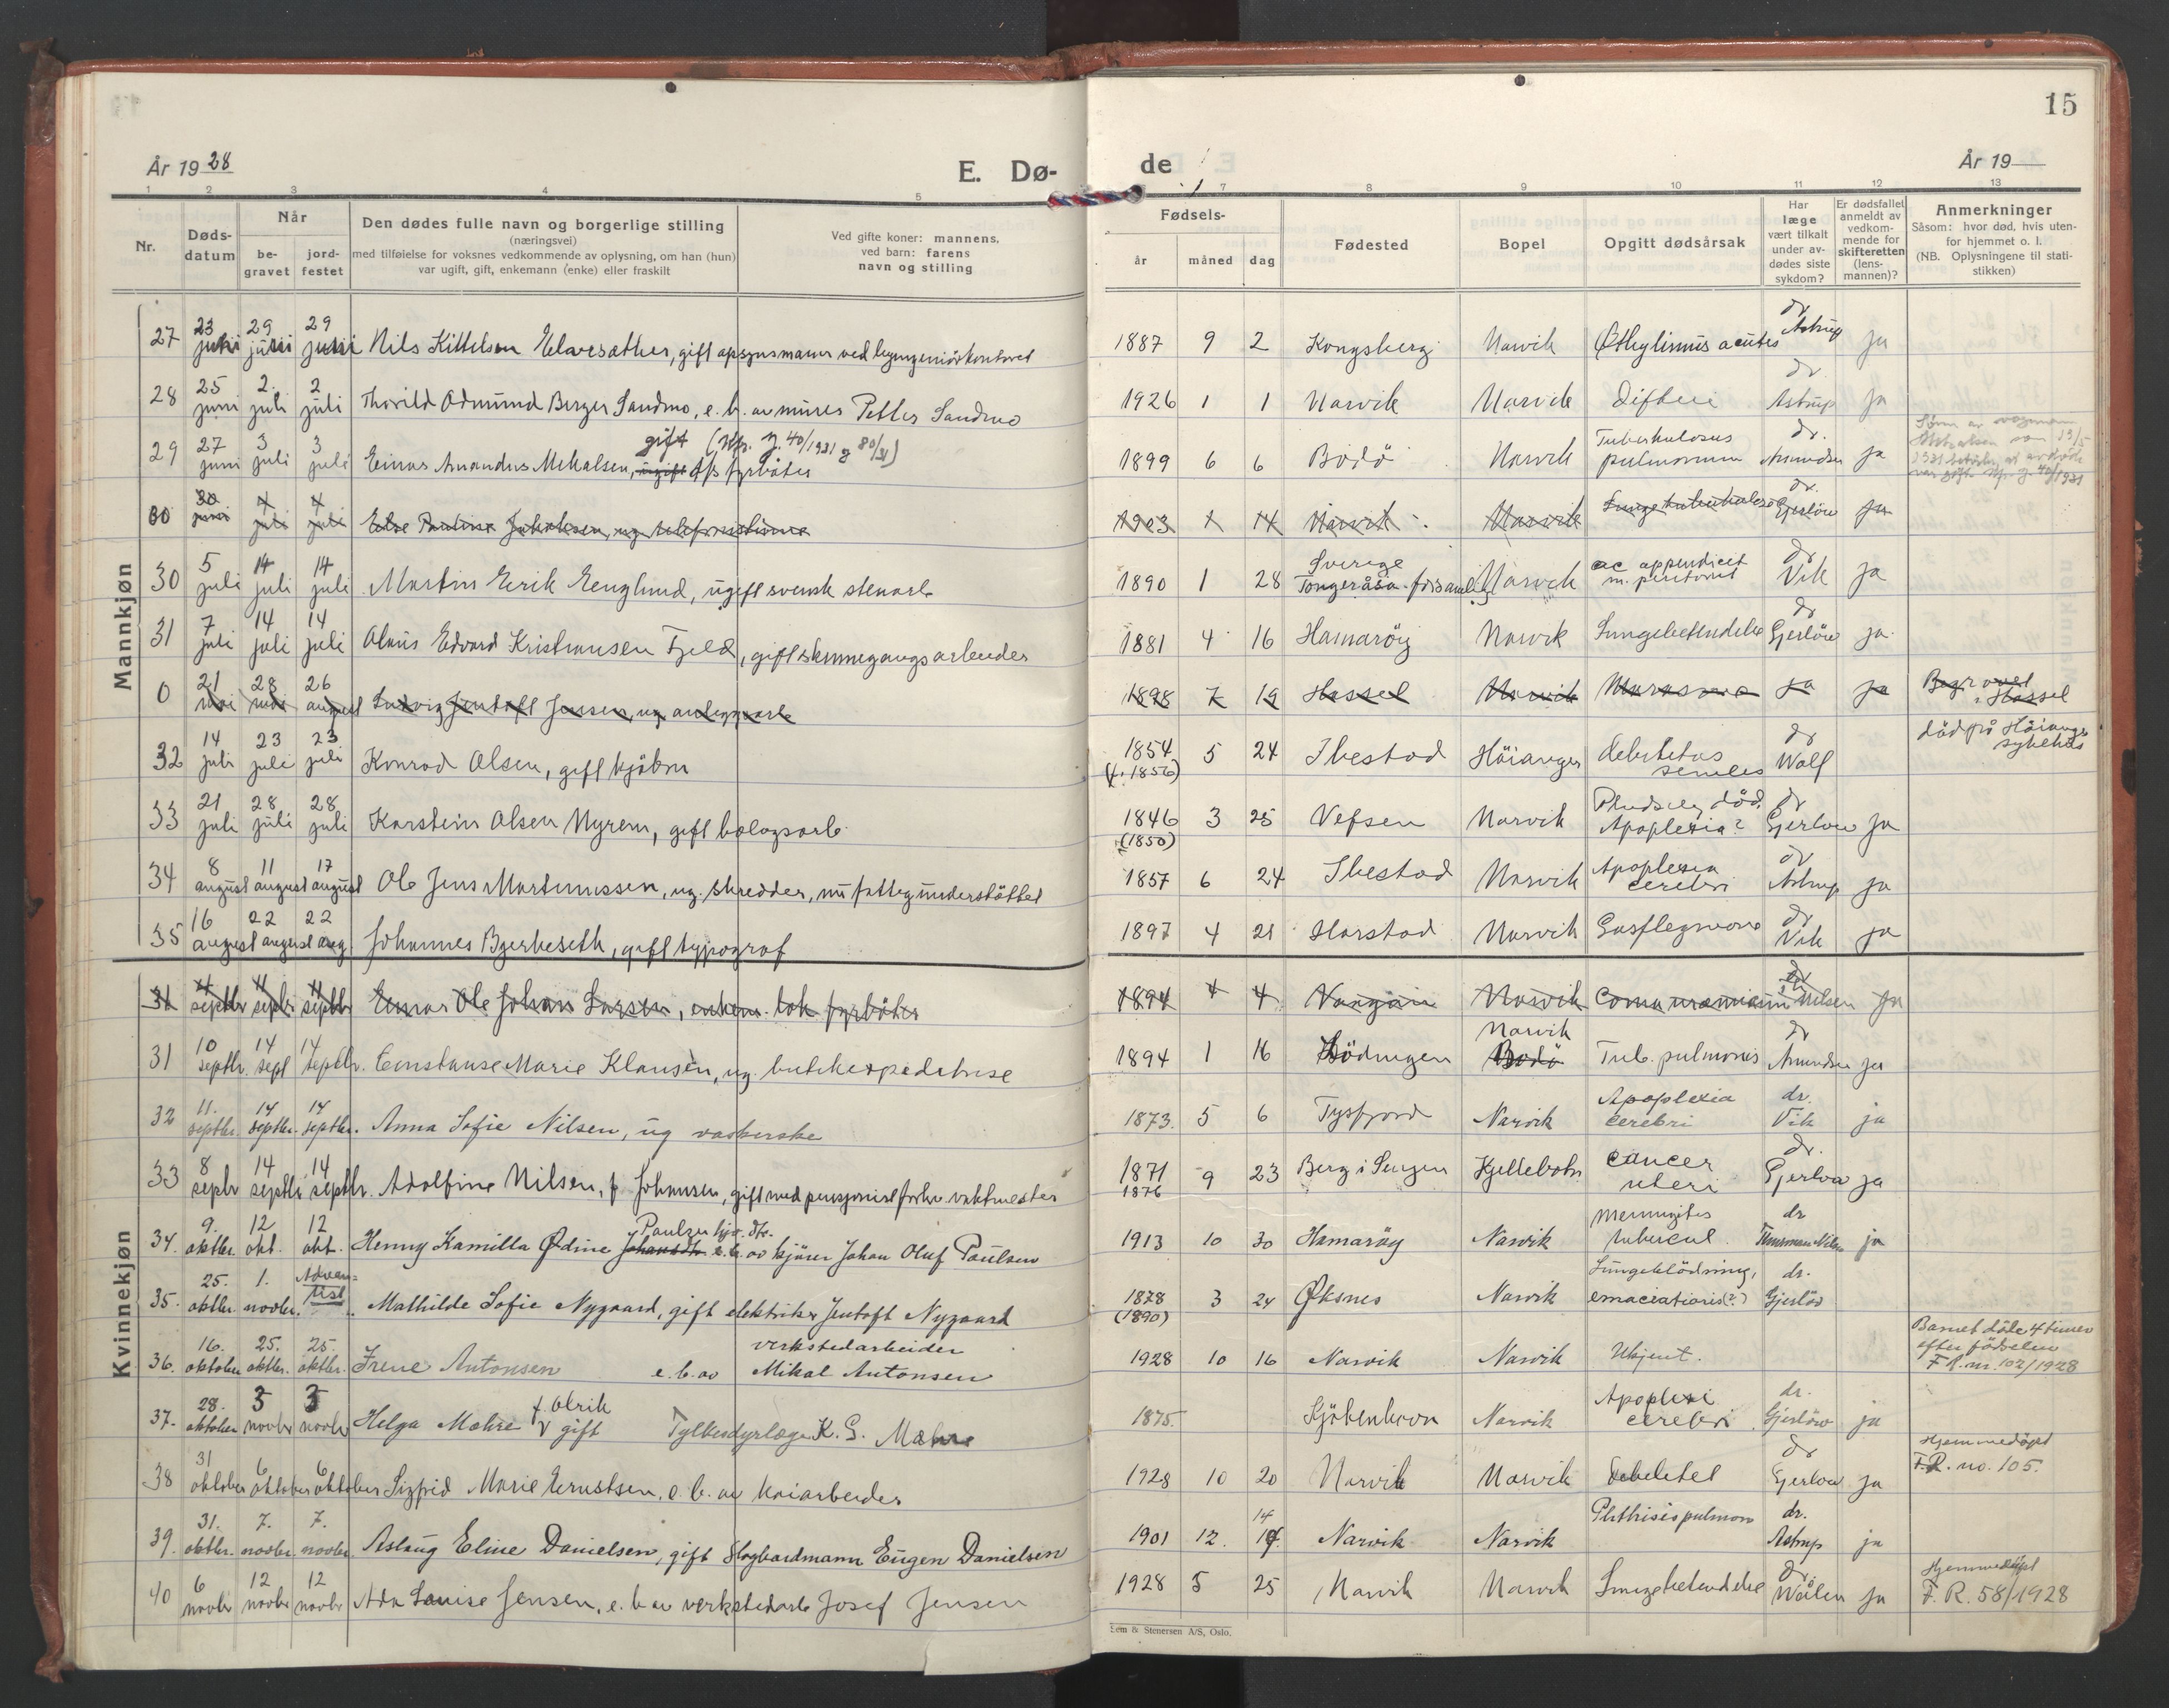 15
År 1928
E. Dø-
de
År 19
1 2 3 4 5
7 8 9 10 11 12 13
Nr.
Døds-
datum
Når
be-
gravet
jord-
festet
Den dødes fulle navn og borgerlige stilling
(næringsvei)
med tilføielse for voksnes vedkommende av oplysning, om han (hun)
var ugift, gift, enkemann (enke) eller fraskilt
Ved gifte koner: mannens,
ved barn: farens
navn og stilling
Fødsels-
år måned dag
Fødested
Bopel
Opgitt dødsårsak
Har
læge
vært tilkalt
under av-
dødes siste
sykdom?
Er dødsfallet
anmeldt av
vedkom-
mende for
skifteretten
(lens-
mannen)?
Anmerkninger
Såsom: hvor død, hvis uten-
for hjemmet o. l.
(NB. Oplysningene til stati-
stikken)
Mannkjøn
27 23 juni 29 juni 29 juni Nils Kittelsen, gift opsynsmann ved 1887 9 2 Kongsberg Narvik dr Astrup ja
28 25 juni 2. juli 2 juli Thorild Odmund Berger Sandmo, e. b. av murer Petter Sandmo 1926 1 1 Narvik Narvik Difteri dr Astrup ja
gift (Kfr. J. 40/1931 & 80/31)
29 27 juni 3 juli 3 juli Einar Amandus Mikalsen, ugift fyrbøter 1899 6 6 Bodö Narvik Tuberkulosus pulmonum dr. Amundsen ja
30 30 juni 4 juli 4 juli Else Pauline Jakobsen, ug. telefonistinne 1903 1 14 Narvik Narvik Lungetuberkulose dr. Gjerlöw ja
30 5 juli 14 juli 14 juli Martin Erik Englund, ugift svensk stenarb 1890 1 28 Sverige Narvik ac appendicit m. peritonit dr Vik ja
31 7 juli 14 juli 14 juli Olaus Edvard Kristiansen Fjeld, gift skinnegangsarbeider 1881 4 16 Hamaröy Narvik Lungebetendelse dr Gjerlöw ja
0 21 mai 28 mai 26 august Ludvig Jentoft Jensen, ug. anleggsarb 1898 7 19 Hassel Narvik ja ja Begravet i Hassel
32 14 juli 23 juli 23 juli Konrad Olsen, gift kjøbm 1854 (f. 1856) 5 24 Ibestad Höianger debilitas seniles dr Wolf död på Höianger sykehus
33 21 juli 28 juli 28 juli Karstein Olsen Nyrem, gift bolagsarb. 1846 (1850) 3 25 Vefsen Narvik Pludselig död. Apoplexia? dr Gjerlow ja
34 8 august 11 august 17 august Ole Jens Martinussen, ug. skredder, nu fattigunderstöttet 1857 6 24 Ibestad Narvik Apoplexia cerebri dr Astrup ja
35 16 august 22 august 22 aug. Johannes Bjerkeseth, gift typograf 1897 4 21 Harstad Narvik Gasflegmone dr Vik ja
Kvinnekjøn
31 4 septbr 11 septbr 11 septbr Einar Ole Johan Larsen, enkem. lok. fyrböter 1894 4 4 Narvik Coma uræmicum dr Nilsen ja
31 10 septbr. 14 sept 14 septbr. Constanse Marie Klausen, ug. butikexpeditrise 1894 1 16 Lödingen Narvik Bodö Tub. pulmonis dr Amundsen ja
32 11. septbr. 14 septbr. 14 septbr. Anna Sofie Nilsen, ug vaskerske 1873. 5 6 Tysfjord Narvik Apoplexia cerebri dr. Vik ja
33 8 septbr 14 septbr 14 septbr. Adolfine Nilsen, f. Johansen, gift med pensjonist forhv. vaktmester 1871 1876 9 23 Berg i Senjen Kjellebotn cancer uteri dr. Gjerlow ja
Paulsen
34. 9. oktbr. 12 okt. 12 okt. Henny Kamilla Ødine e. b. av kjörer Johan Oluf Paulsen 1913 10 30 Hamaröy Narvik Meningitis tubercul. dr ja
35. 25. oktbr. 1. novbr. Adventist Mathilde Sofie Nygaard, gift elektriker Jentoft Nygaard 1878 (1890) 3 24 Øksnes Narvik Lungeblödning, emaciationis(?) dr. Gjerlöw
36. 16. oktober 25. oktbr. 25. oktbr. Irene Antonsen e. b. av verkstedarbeider Mikal Antonsen 1928 10 16 Narvik Narvik Ukjent. Barnet döde 4 timer efter födselen F.R. nr. 102/1928
37. 28. oktober 3 novbr 3 novbr Helga Mæhre f. Ulrik gift Fylkesdyrlæge K. G. Mæhre 1875 Kjöbenhavn Narvik Apoplexi cerebri dr. Gjerlöw ja
38 31 oktober 6 oktober 6 oktober Sigrid Marie Ernstsen, e. b. av kaiarbeider 1928 10 20 Narvik Narvik Debilitet dr Gjerlow ja Hjemmedöpt F.R. no. 105.
39. 31. oktbr. 7. novbr. 7. novbr. Aslaug Eline Danielsen, gift Eugen Danielsen 1901 12. 14 Narvik Narvik Phthisis pulmon dr. Astrup ja
40 6 novbr 12 novbr 12 novbr Ada Louise Jensen, e. b. av verkstedarb Josef Jensen 1928 5 25 Narvik Narvik Lungebetendelse dr. Wælen ja Hjemmedöpt F. R. 58/1928
Lem & Stenersen A/S, Oslo.